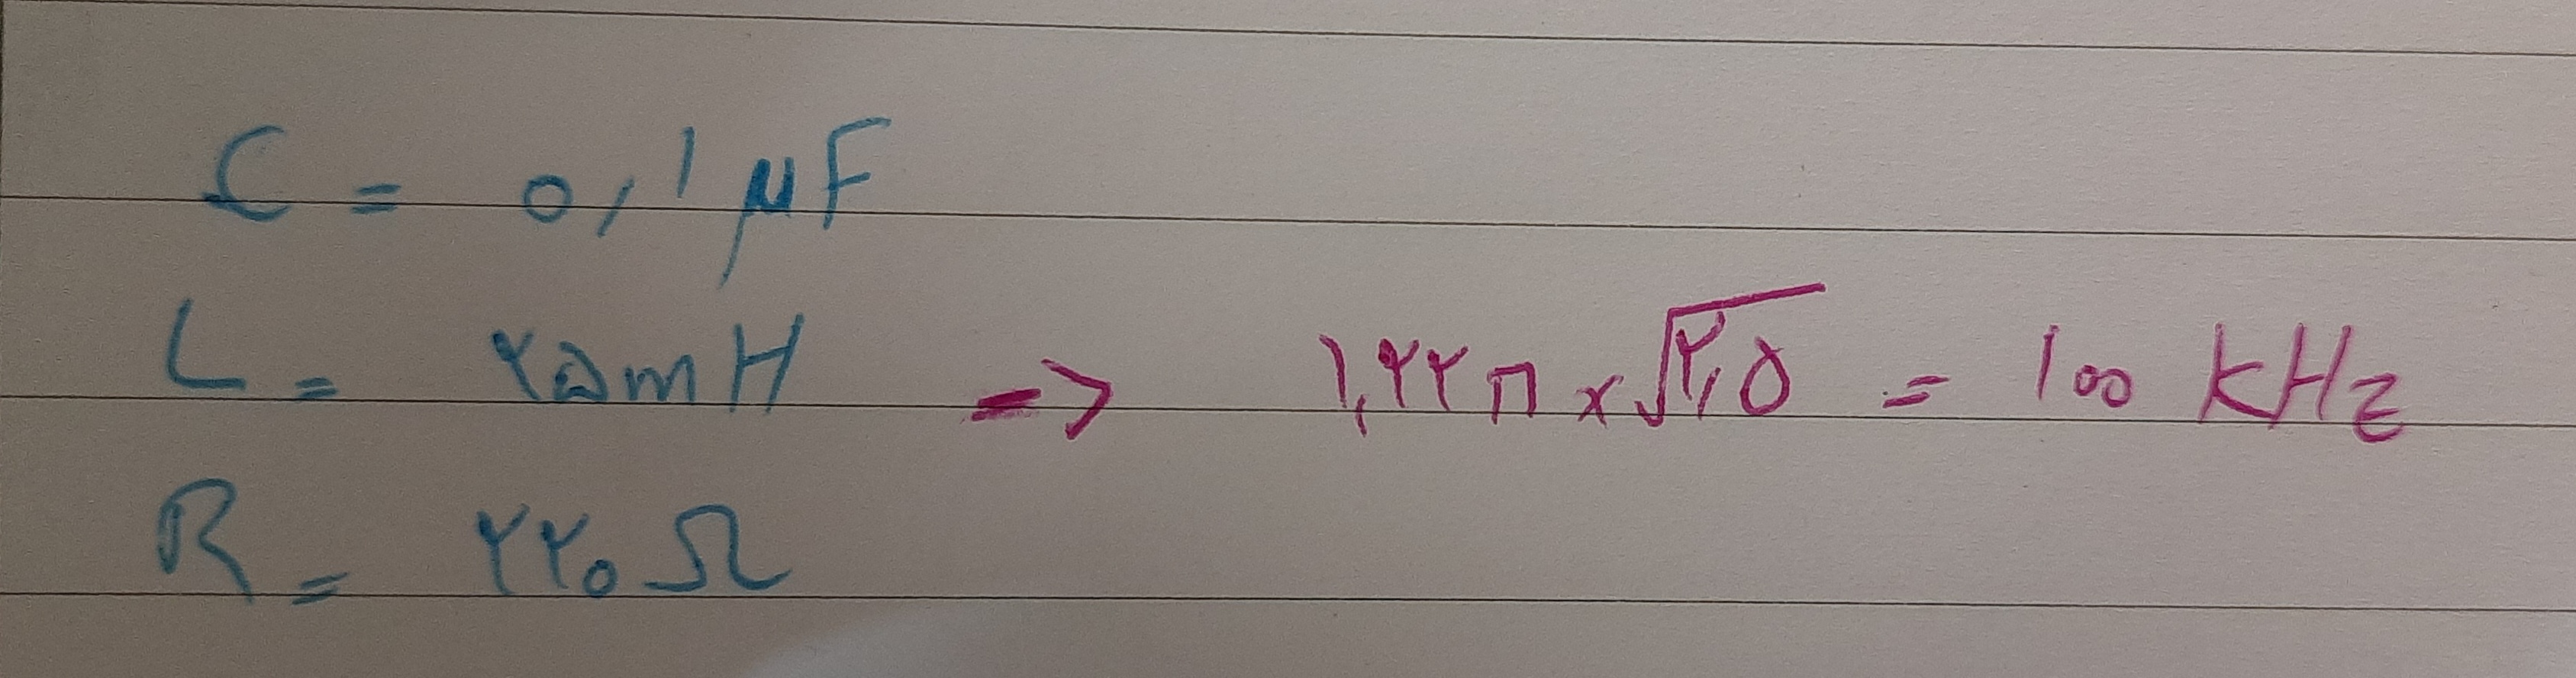 C = ۰,۱ µF
L = ۲۵mH -> ۱,۲۲π × √۲,۵ = ۱۰۰ kHz
R = ۲۲۰ Ω